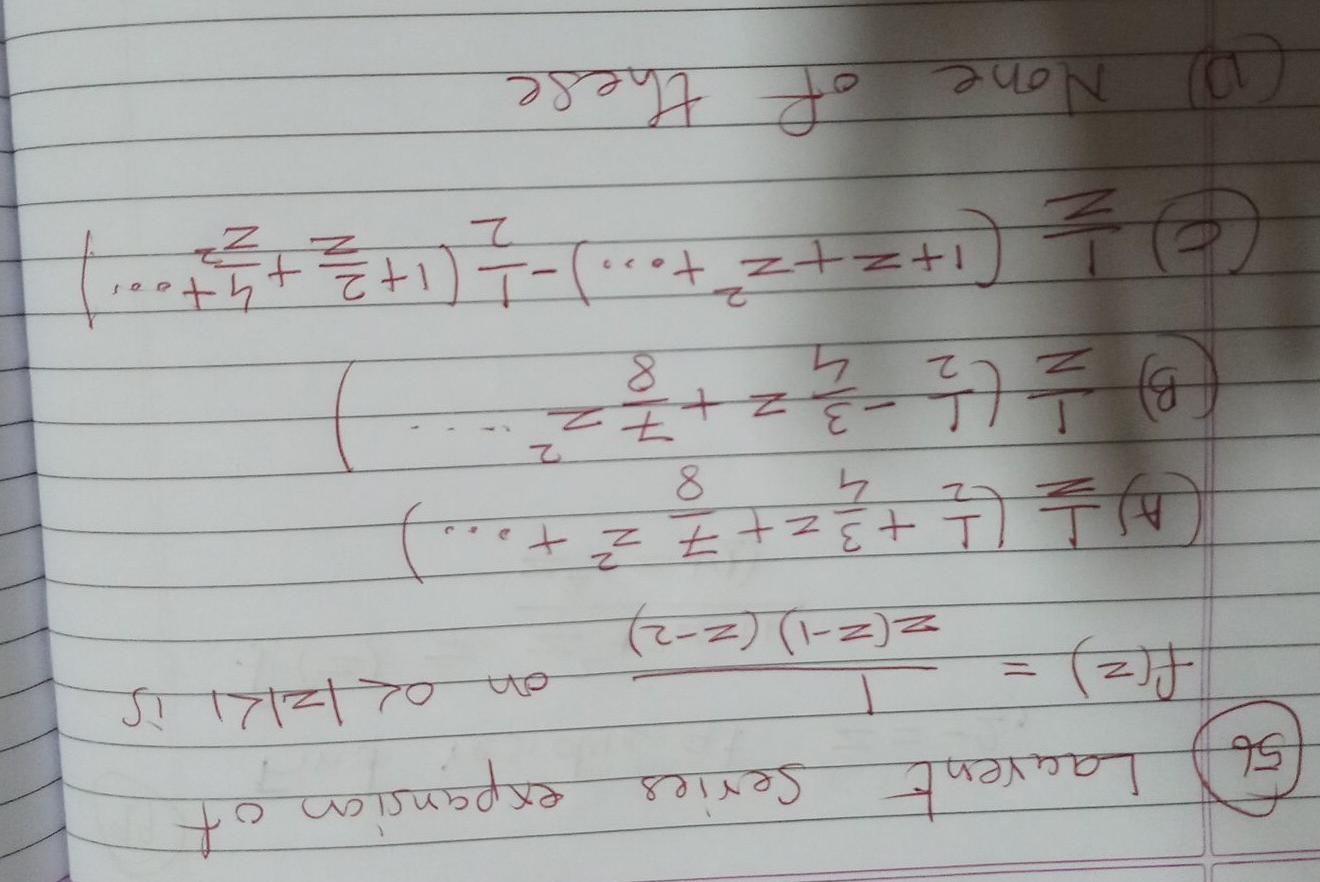 56 Laurent series expansion of
f(z) = 1/(z(z-1)(z-2)) on 0<|z|<1 is
(A) 1/z (1/2 + 3/4 z + 7/8 z² + ...)
(B) 1/z (1/2 - 3/4 z + 7/8 z² ....)
(C) 1/z (1+z+z²+...) - 1/2 (1+2/z+4/z²+...)
(D) None of these